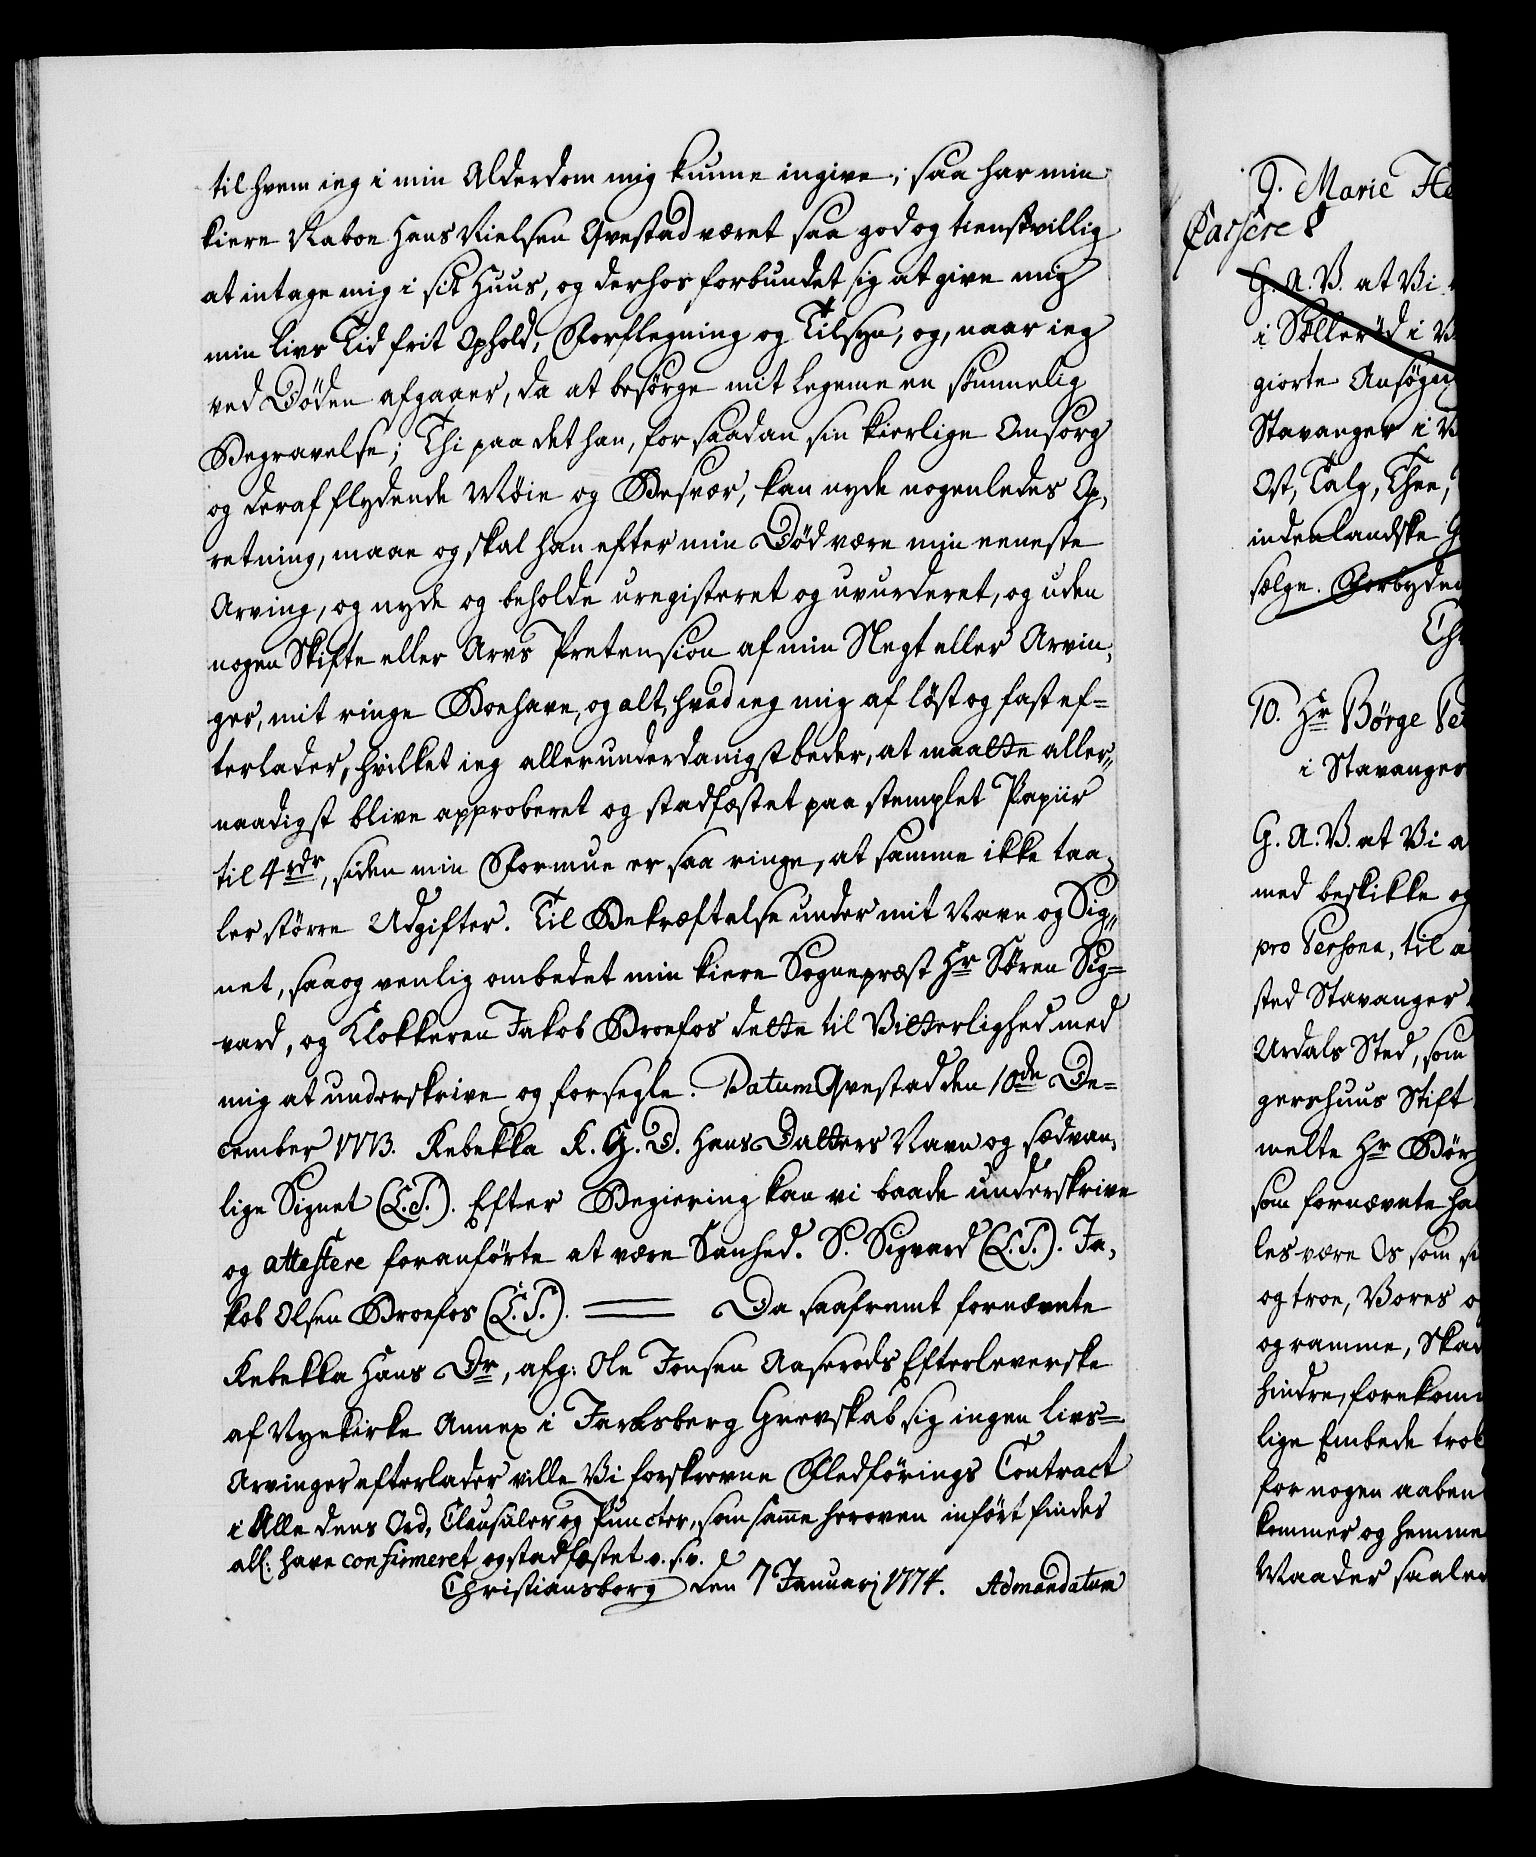 til hvem ieg i min Alderdom mig kunne ingive; saa har min
kiere Naboe Hans Nielsen Qvestad været saa god og tienstvillig
at intage mig i sit Huus, og derhos forbundet sig at give mig
min Livs Tid frit Ophold, Forflegning og Tilsyn, og, naar ieg
ved Døden afgaaer, da at besørge mit Legeme en sømmelig
Begravelse; Thi paa det han, for saadan sin kierlige Omsorg
og deraf flydende Møie og Besvær, kan nyde nogenledes Op,
retning, maae og skal han efter min Død være min eeneste
Arving, og nyde og beholde uregisteret og uvurderet, og uden
nogen Skifte eller Arvs Pretension af min Slegt eller Arvin,
ger, mit ringe Boehave, og alt, hvad ieg mig af løst og fast ef=
terlader, hvilket ieg allerunderdanigst beder, at maatte aller,,
naadigst blive approberet og stadfæstet paa stemplet Papiir
til 4 rdr, siden min Formue er saa ringe, at samme ikke taa,
ler større Udgifter. Til Bekræftelse under mit Navn og Sig,,
net, saa og venlig ombedet min kiere Sognepræst Hr Søren Sig=
vard, og Klokkeren Jakob Broefos dette til Vitterlighed med
mig at underskrive og forsegle. Datum Qvestad den 10de De=
cember 1773. Rebekka R. H. D. Hans Datters Navn og sædvan,
lige Signet (L.S.). Efter Begiering kan vi baade underskrive
og attestere foranførte at være Sanhed. S. Sigvard (L.S.). Ja,
kob Olsen Broefos (L.S.). ____ Da saafremt fornævnte
Rebekka Hans Dr, afg: Ole Jensen Aaserøds Efterleverske
af Nyekirke Annex i Jarlsberg Grevskab sig ingen Livs=
Arvinger efterlader ville Vi forskrevne Fledførings Contract
i Alle dens Ord, Clausuler og Puncter, som samme heroven indført findes
all: have confirmeret og stadfæstet v. s. v.
Christiansborg den 7 Januarj 1774. Ad mandatum
9. Marie He
Casseres
G. A. V. at Vi
i Sølleröd i V
giorte Ansögn
Stavanger i V
Ost, Talg, Thee,
indenlandske
sælge. Forbyden
10. Hr Børge Pe
i Stavanger
G. A. V. at Vi a
med beskikke og
pro Persona, til a
sted Stavanger
Urdals Sted, som
gershuus Stift
melte Hr Bør
som fornævnte ha
les være Os som
og troe, Vores
og ramme, Skad
hindre, forekom
lige Embede trol
for nogen aaben
kommer og hemme
Maader saaled